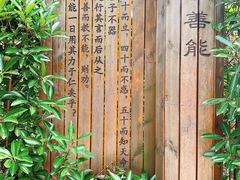 善能
十而立，四十而不惑，五十而知天命
子不器
行其言而后从之
善而教不能，则劝。
能一日用其力于仁矣乎？